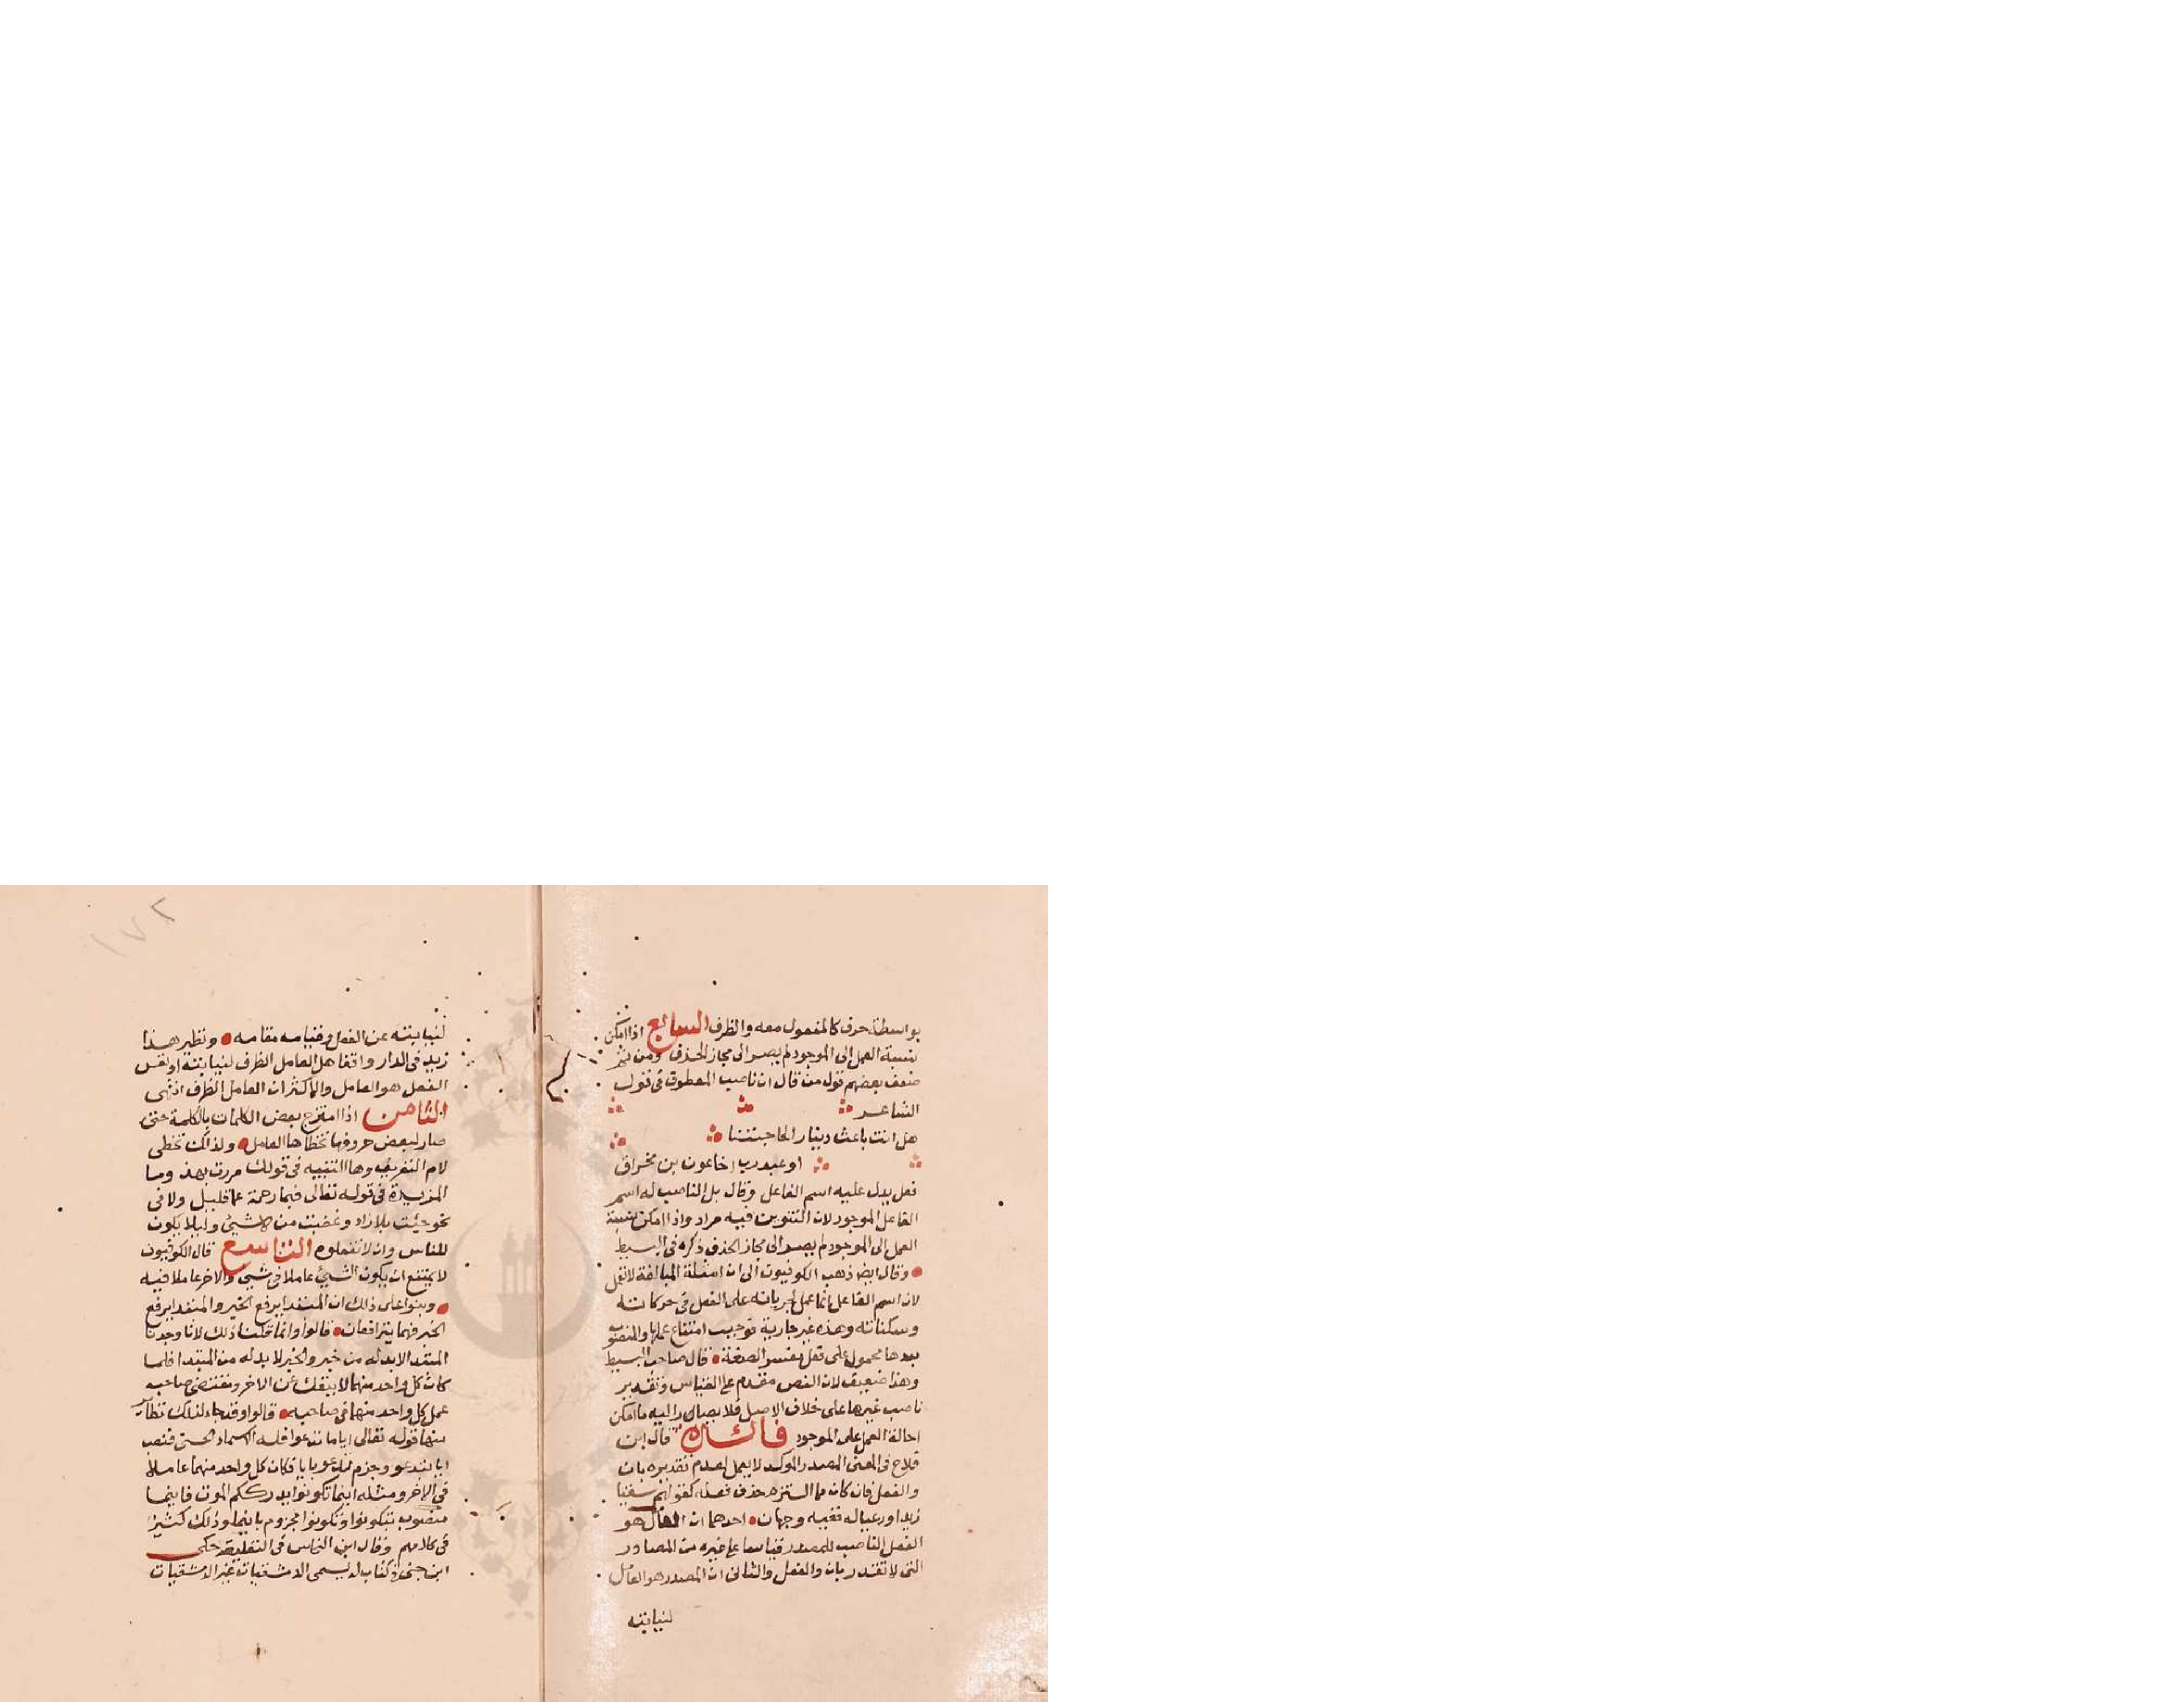 بواسطة حرف كالمفعول معه والظرف السابع اذا امكن
نسبة العمل الى الموجود لم يصر الى مجاز الحذف ومن ثم
ضعف بعضهم قول من قال ان ناصب المعطوف فى قول
الشاعر
هل انت باعث دينار لحاجتنا
او عبد رب اخا عون بن مخراق
فعل يدل عليه اسم الفاعل وقال بل الناصب له اسم
الفاعل الموجود لان التنوين فيه مراد واذا امكن نسبة
العمل الى الموجود لم يصر الى مجاز الحذف ذكره فى البسيط
وقال ايضا ذهب الكوفيون الى ان امثلة المبالغة لا تعمل
لان اسم الفاعل انما عمل لجريانه على الفعل فى حركاته
وسكناته وهذه غير جارية فوجب امتناع عملها والمنصوب
بعدها محمول على فعل يفسر الصفة قال صاحب البسيط
وهذا ضعيف لان النص مقدم على القياس وتقدير
ناصب غيرها على خلاف الاصل فلا يصار اليه ما امكن
احالة العمل على الموجود فائدة قال ابن
فلاح فى المغنى المصدر الموكد لا يعمل لعدم تقديره بان
والفعل فان كان مما التزم حذف فعله كقولهم سقيا
زيدا ورعيا له ففيه وجهان احدهما ان العامل هو
الفعل الناصب للمصدر قياسا على غيره من المصادر
التى لا تقدر بان والفعل والثانى ان المصدر هو العامل
لنيابته
١٧٢
لنيابته عن الفعل وقيامه مقامه ونظير هذا
زيد فى الدار واقفا هل العامل الظرف لنيابته او نفس
الفعل هو العامل والاكثر ان العامل الظرف انتهى
الثامن اذا امتزج بعض الكلمات بالكلمة حتى
صار لبعض حروفها تخطاها العامل ولذلك تخطى
لام التعريف وها التنبيه فى قولك مررت بهذا وما
المزيدة فى قوله تعالى فبما رحمة عما قليل ولا فى
نحو جئت بلا زاد وغضبت من لا شيئ وليلا يكون
للناس وان لا تفعلوه التاسع قال الكوفيون
لا يمتنع ان يكون الشيئ عاملا فى شيئ والاخر عاملا فيه
وبنوا على ذلك ان المبتدا يرفع الخبر والمبتدا يرفع
الخبر فهما يترافعان قالوا وانما قلنا ذلك لانا وجدنا
المبتدا لا بد له من خبر والخبر لا بد له من المبتدا فلما
كان كل واحد منهما لا ينفك عن الاخر ويقتضى صاحبه
عمل كل واحد منهما فى صاحبه قالوا وقد جاء لذلك نظائر
منها قوله تعالى اياما تدعوا فله الاسماء الحسنى فنصب
ايا بتدعو وجزم تدعو بايا فكان كل واحد منهما عاملا
فى الاخر ومثله اينما تكونوا يدرككم الموت فاينما
منصوب بتكونوا وتكونوا مجزوم باينما وذلك كثير
فى كلامهم وقال ابن النحاس فى التعليقة حكى
ابن جنى فى كتاب له يسمى الدمشقيات غير الدمشقيات